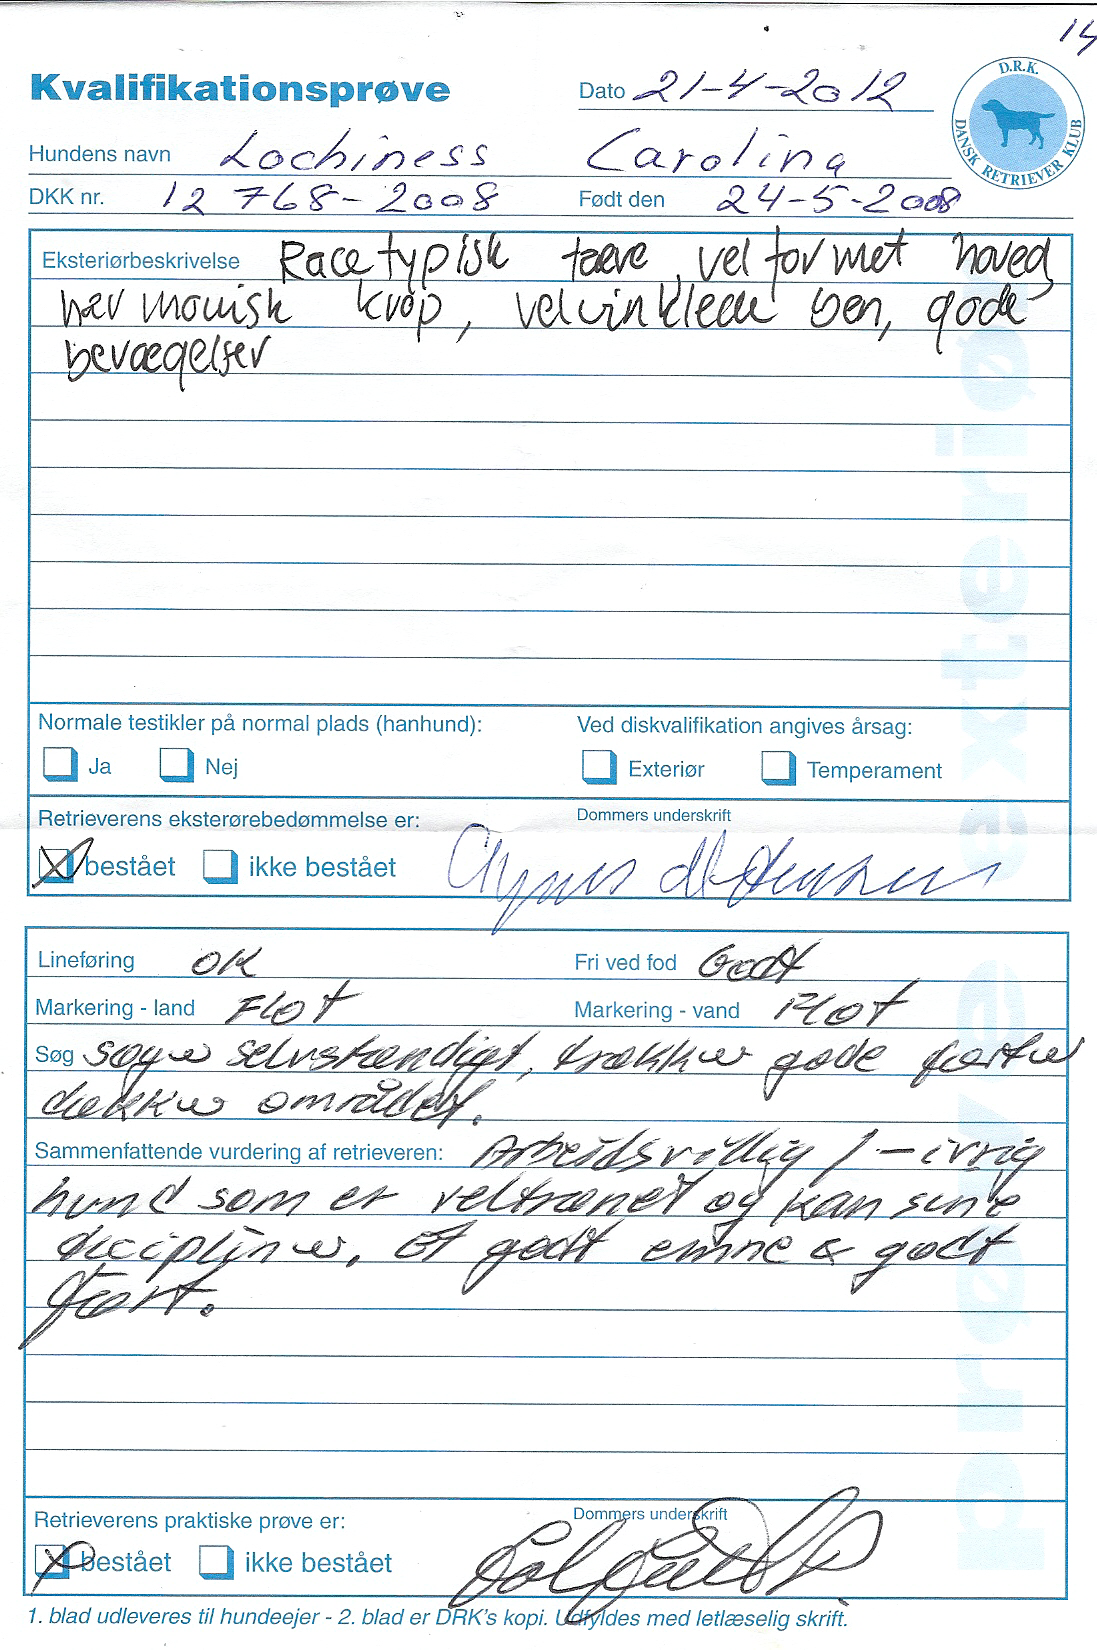 14
Kvalifikationsprøve
Dato 21-4-2012
D.R.K.
DANSK RETRIEVER KLUB
Hundens navn Lochiness Carolina
DKK nr. 12768-2008
Født den 24-5-2008
Eksteriørbeskrivelse Racetypisk tæve, velformet hoved,
harmonisk krop, velvinklede ben, gode
bevægelser
exteriør
Normale testikler på normal plads (hanhund):
Ja Nej
Ved diskvalifikation angives årsag:
Exteriør Temperament
Retrieverens eksterørebedømmelse er:
bestået ikke bestået
Dommers underskrift
Lineføring OK
Fri ved fod Godt
Markering - land Flot
Markering - vand Flot
Søg søger selvstændigt, trækker gode færter
dækker området.
Sammenfattende vurdering af retrieveren: Arbejdsvillig / -ivrig
hund som er veltrænet og kan sine
discipliner. Et godt emne & godt
ført.
prøve
Retrieverens praktiske prøve er:
bestået ikke bestået
Dommers underskrift
1. blad udleveres til hundeejer - 2. blad er DRK's kopi. Udfyldes med letlæselig skrift.